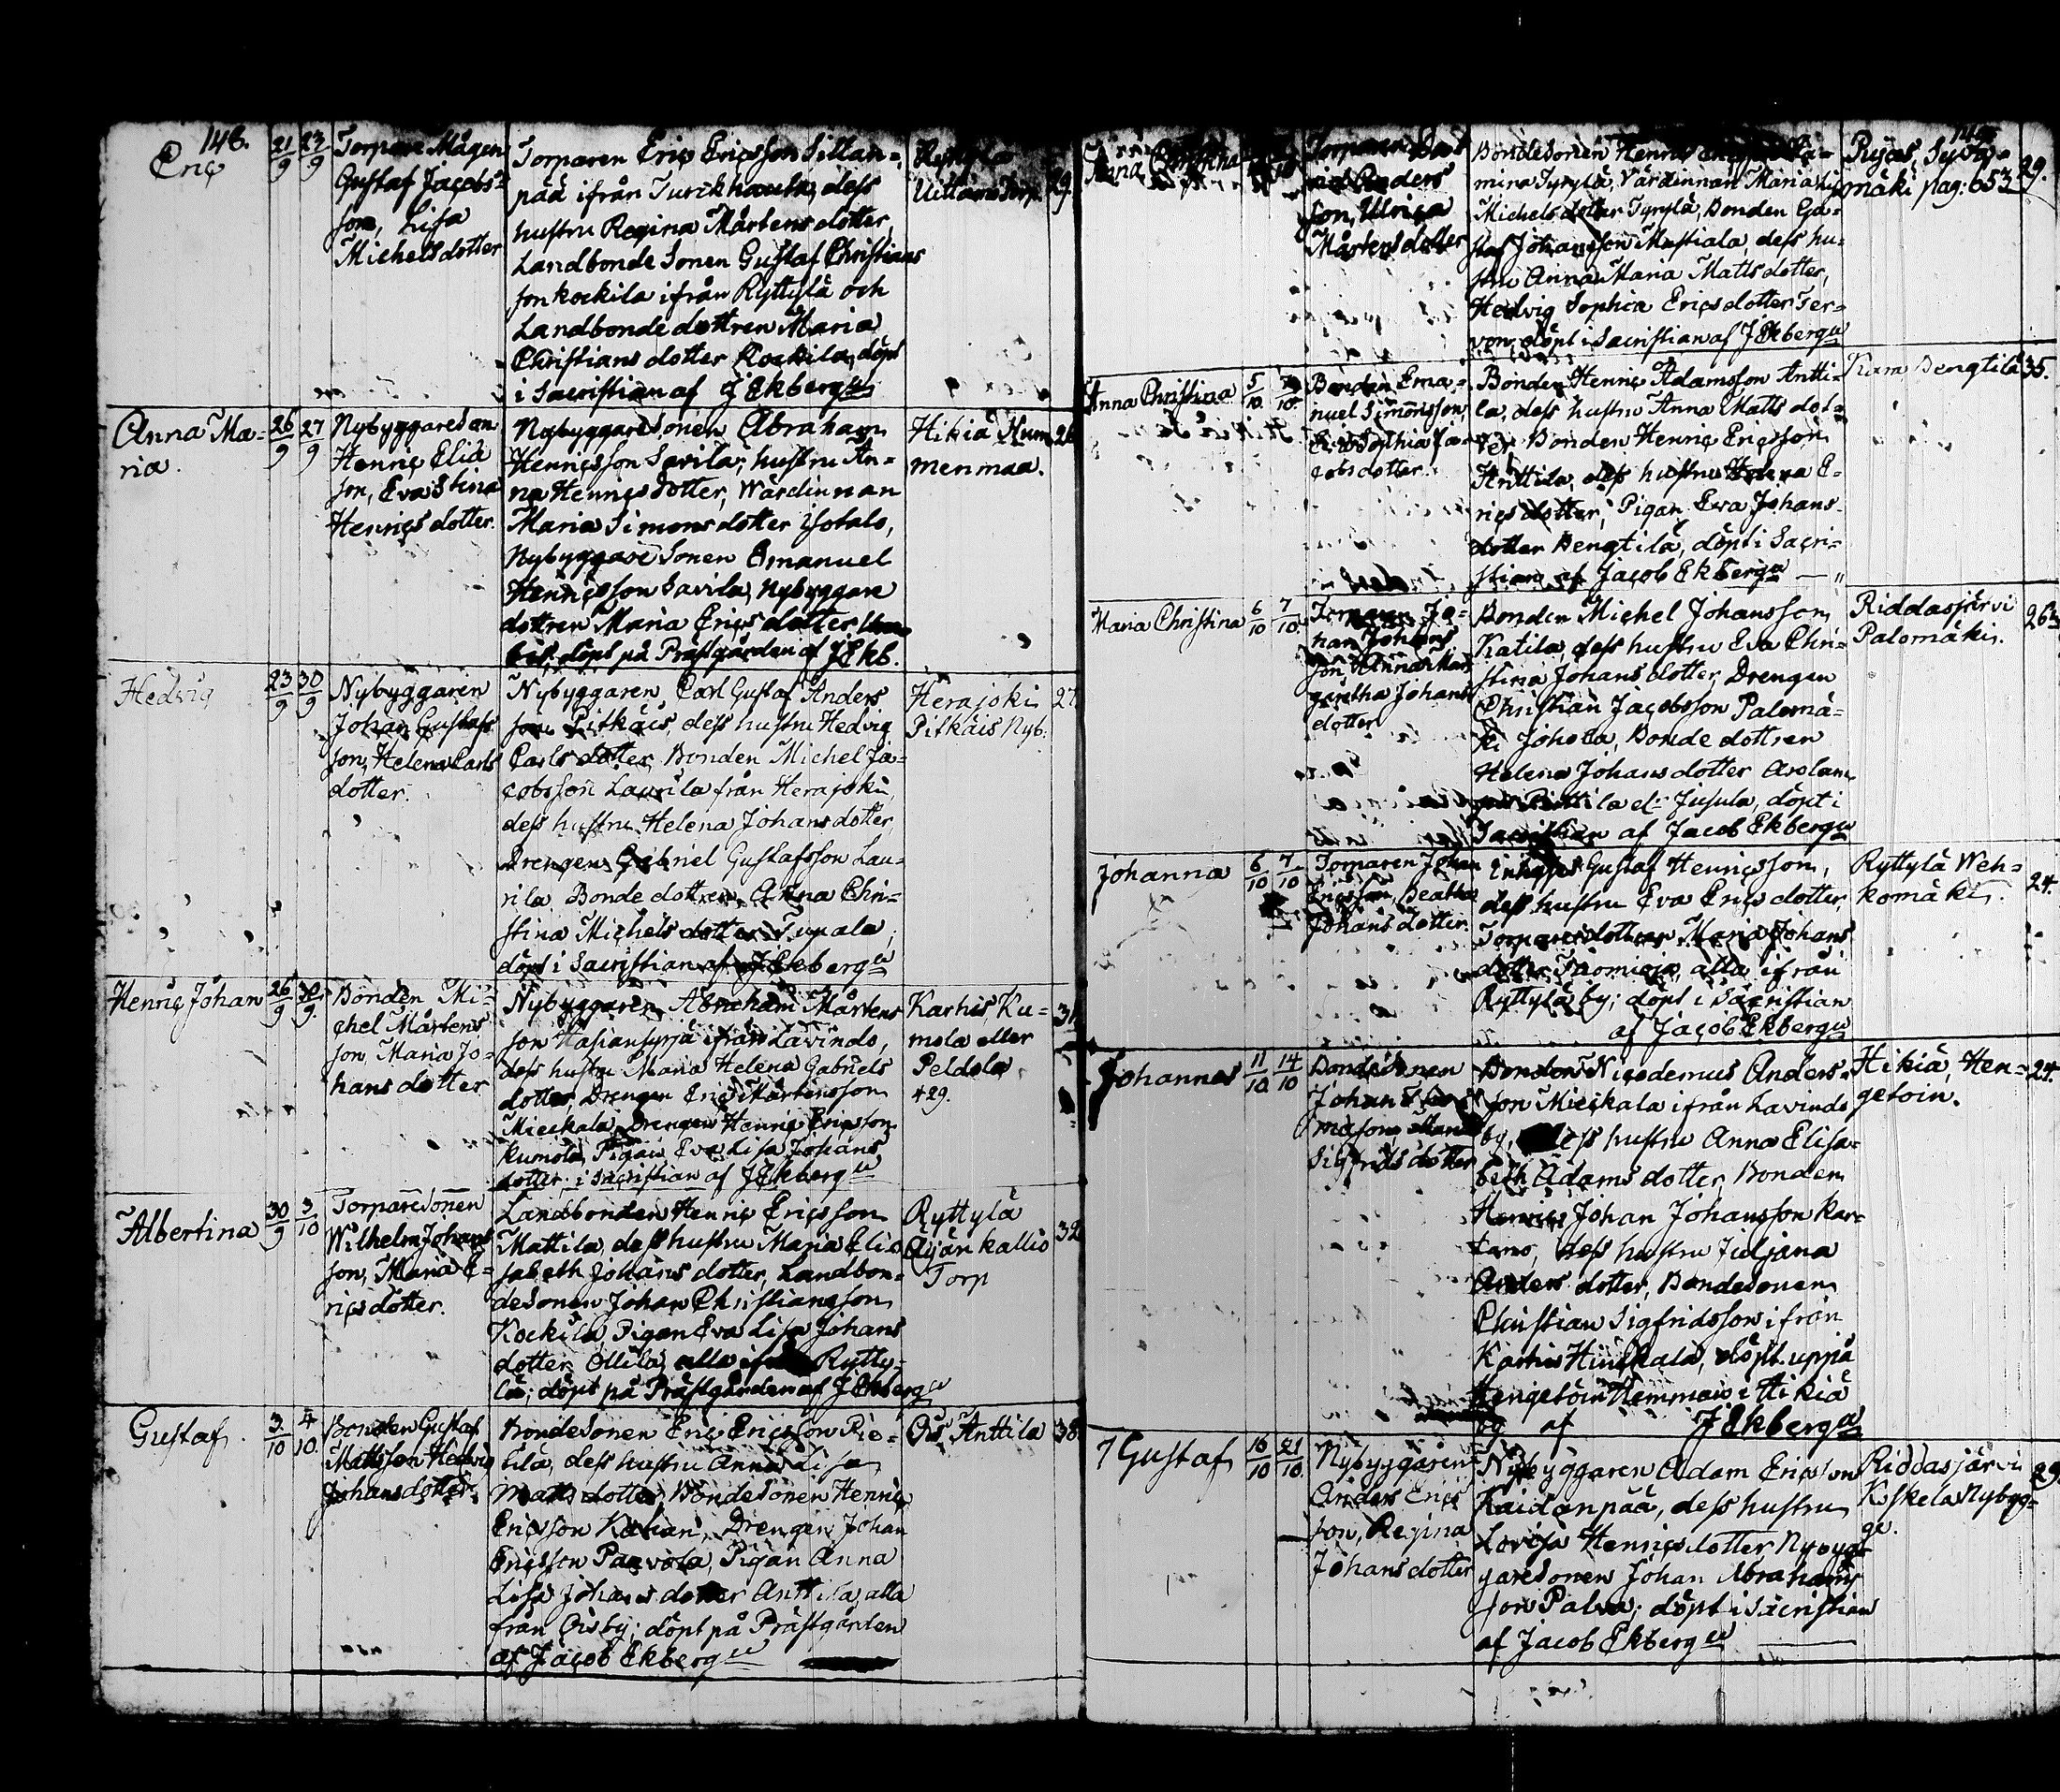 148.
Eric
21/9
23/9
Torpare Mågen
Gustaf Jacobs-
son, Lisa
Michelsdotter
Torparen Eric Ericsson Sillan-
pää ifrån Turckhauta, dess
hustru Regina Mårtensdotter,
Landbonde Sonen Gustaf Christians
son Kockila ifrån Ryttylä och
Landbonde dottren Maria
Christians dotter Kockila, döpt
i Sacristian af J Ekberg
Torp.
29.
Anna Ma-
ria.
26/9
27/9
Nybyggaresonen
Henric Elia
son, Eva Stina
Henrics dotter.
Nybyggaresonen Abraham
Henricsson Savila, hustru An-
na Henrics dotter, Wärdinnan
Maria Simons dotter Isotalo,
Nybyggare Sonen Emanuel
Henricsson Savila, Nybyggare
dottren Maria Erics dotter
döpt på Prästgården af J Ekb.
Hikiä Kum
menmaa.
26
Hedvig
23/9
30/9
Nybyggaren
Johan Gustafs
son, Helena Carls
dotter.
Nybyggaren Carl Gustaf Anders
son Pitkäis, dess hustru Hedvig
Carls dotter, Bonden Michel Ja-
cobsson Laurila från Herajoki
dess hustru Helena Johans dotter,
Drengen Gabriel Gustafsson Lau-
rila Bonde dottren Anna Chri-
stina Michels dotter Tupala,
döpt i Sacristian af J Ekberg
Herajoki
Pitkäis Nyb.
27.
Henric Johan
26/9
30/9
Bonden Mi-
chel Mårtens
son, Maria Jo-
hans dotter
Nybyggaren Abraham Mårtens
son ifrån Lavindo,
dess hustru Maria Helena Gabriels
dotter, Drengen Eric Mårtensson
Mieckala, Drengen Henric Ericsson
Kumola, Pigan Eva Lisa Johans
dotter, i Sacristian af J Ekberg
Karhis, Ku-
mola eller
Peldola
429.
31.
Albertina
30/9
3/10
Torparesonen
Wilhelm Johans
son, Maria E-
rics dotter.
Landbonden Henric Ericsson
Mattila, dess hustru Maria Elisa
sabeth Johans dotter, Landbon-
desonen Johan Christiansson
Kockila, Pigan Eva Lisa Johans
dotter Ollila, alla ifrån Rytty-
lä; döpt på Prästgården af J Ekberg
Ryttylä
Äijän kallio
Torp
32
Gustaf.
3/10
4/10.
Bonden Gustaf
Mattsson Hedvig
Johansdotter.
Bondesonen Eric Ericsson Pie-
tilä, dess hustru Anna Lisa
Matts dotter, Bondesonen Henric
Ericsson Kahari, Drengen Johan
Ericsson Paavola, Pigan Anna
Lisa Johans dotter Anttila, alla
från Ois by; döpt på Prästgården
af Jacob Ekberg
Ois Anttila
38.
149.
Anna Christina
Torparen Da
vid Anders
son, Ulrica
Mårtensdotter
Bondesonen Henric
mina Tyrylä, Värdinnan Maria
Michels dotter Tyrylä, Bonden Gu-
staf Johansson Mustiala, dess hu-
stru Anna Maria Matts dotter,
Hedvig Sophia Ericsdotter Ter-
von, döpt i Sacristian af J Ekberg
Ryjas, Syvä-
mäki pag: 653
29.
Anna Christina
5/10
Bonden Ema-
nuel Simonsson,
Eva Sophia Ja-
cobsdotter.
Bonden Henric Adamsson Antti-
la, dess hustru Anna Matts dot-
ter, Bonden Henric Ericsson
Anttila, dess hustru Helena E-
rics dotter, Pigan Eva Johans-
dotter Bengtilä, döpt i Sacri-
stian af Jacob Ekberg
Kara Bengtilä
35.
Maria Christina
6/10
7/10.
Torparen Jo-
han Johans
son, Anna Mar
garetha Johans
dotter
Bonden Michel Johansson
Katila, dess hustru Eva Chri-
stina Johans dotter, Drengen
Christian Jacobsson Palomä-
ki Johola, Bonde dottren
Helena Johans dotter
Jusula, döpt i
Sacristian af Jacob Ekberg
Riddasjärvi
Palomäki.
26
Johanna
6/10
7/10
Torparen Johan
Ericsson, Beatha
Johans dotter.
Gustaf Henricsson,
dess hustru Eva Erics dotter,
Torparedottren Maria Johans
dotter alla ifrån
Ryttylä by; döpt i Sacristian
af Jacob Ekberg
Ryttylä Weh-
komäki.
24.
Johannes
11/10
14/10
Bondesonen
Johan
Sigfrids dotter
Bonden Nicodemus Anders-
son Mieckala ifrån Lavindo
by, dess hustru Anna Elisa-
beth Adams dotter, Bonden
Henric Johan Johansson Kar-
tano, dess hustru Juljana
Anders dotter, Bondesonen
Christian Sigfridsson ifrån
Karhis Hinckala, döpt uppå
Hengetoin Hemman i Hikiä
by af J Ekberg
Hikiä, Hen-
getoin.
24.
7 Gustaf
16/10
21/10.
Nybyggaren
Anders Erics
son, Regina
Johans dotter
Nybyggaren Adam Ericsson
Kaidanpää, dess hustru
Lovisa Henricsdotter Nybygg
garesonen Johan Abrahams
son Palva; döpt i Sacristian
af Jacob Ekberg
Riddasjärvi
Koskela Nybyg-
ge.
29